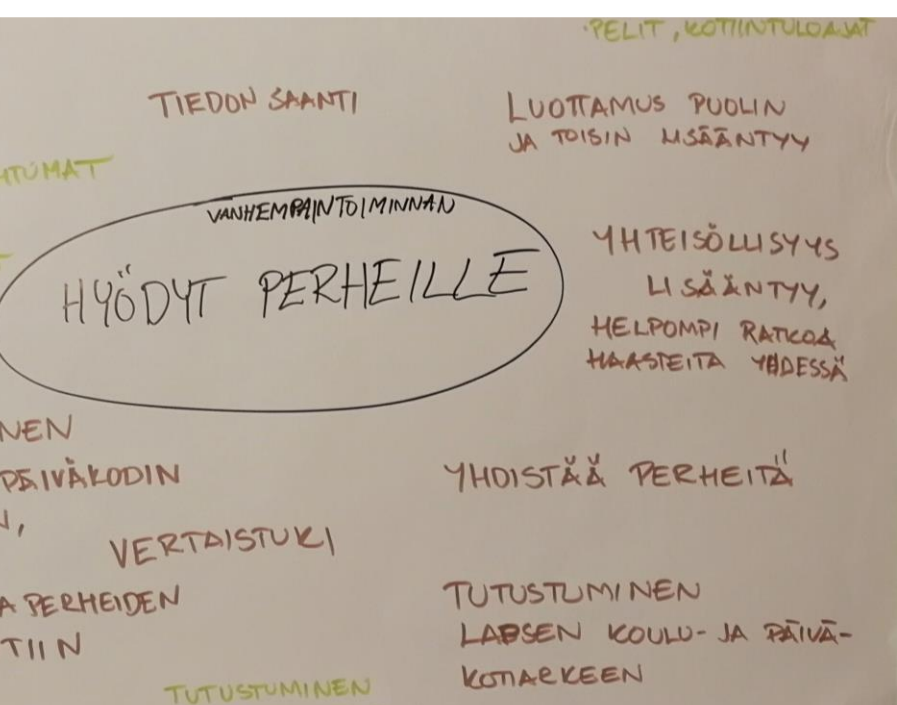 •PELIT, KOTIINTULOAJAT
TIEDON SAANTI
LUOTTAMUS PUOLIN
JA TOISIN LISÄÄNTYY
HTUMAT
VANHEMPAINTOIMINNAN
HYÖDYT PERHEILLE
YHTEISÖLLISYYS
LISÄÄNTYY,
HELPOMPI RATKOA
HAASTEITA YHDESSÄ
NEN
PÄIVÄKODIN
N,
YHDISTÄÄ PERHEITÄ
VERTAISTUKI
A PERHEIDEN
TIIN
TUTUSTUMINEN
LAPSEN KOULU- JA PÄIVÄ-
KOTIARKEEN
TUTUSTUMINEN